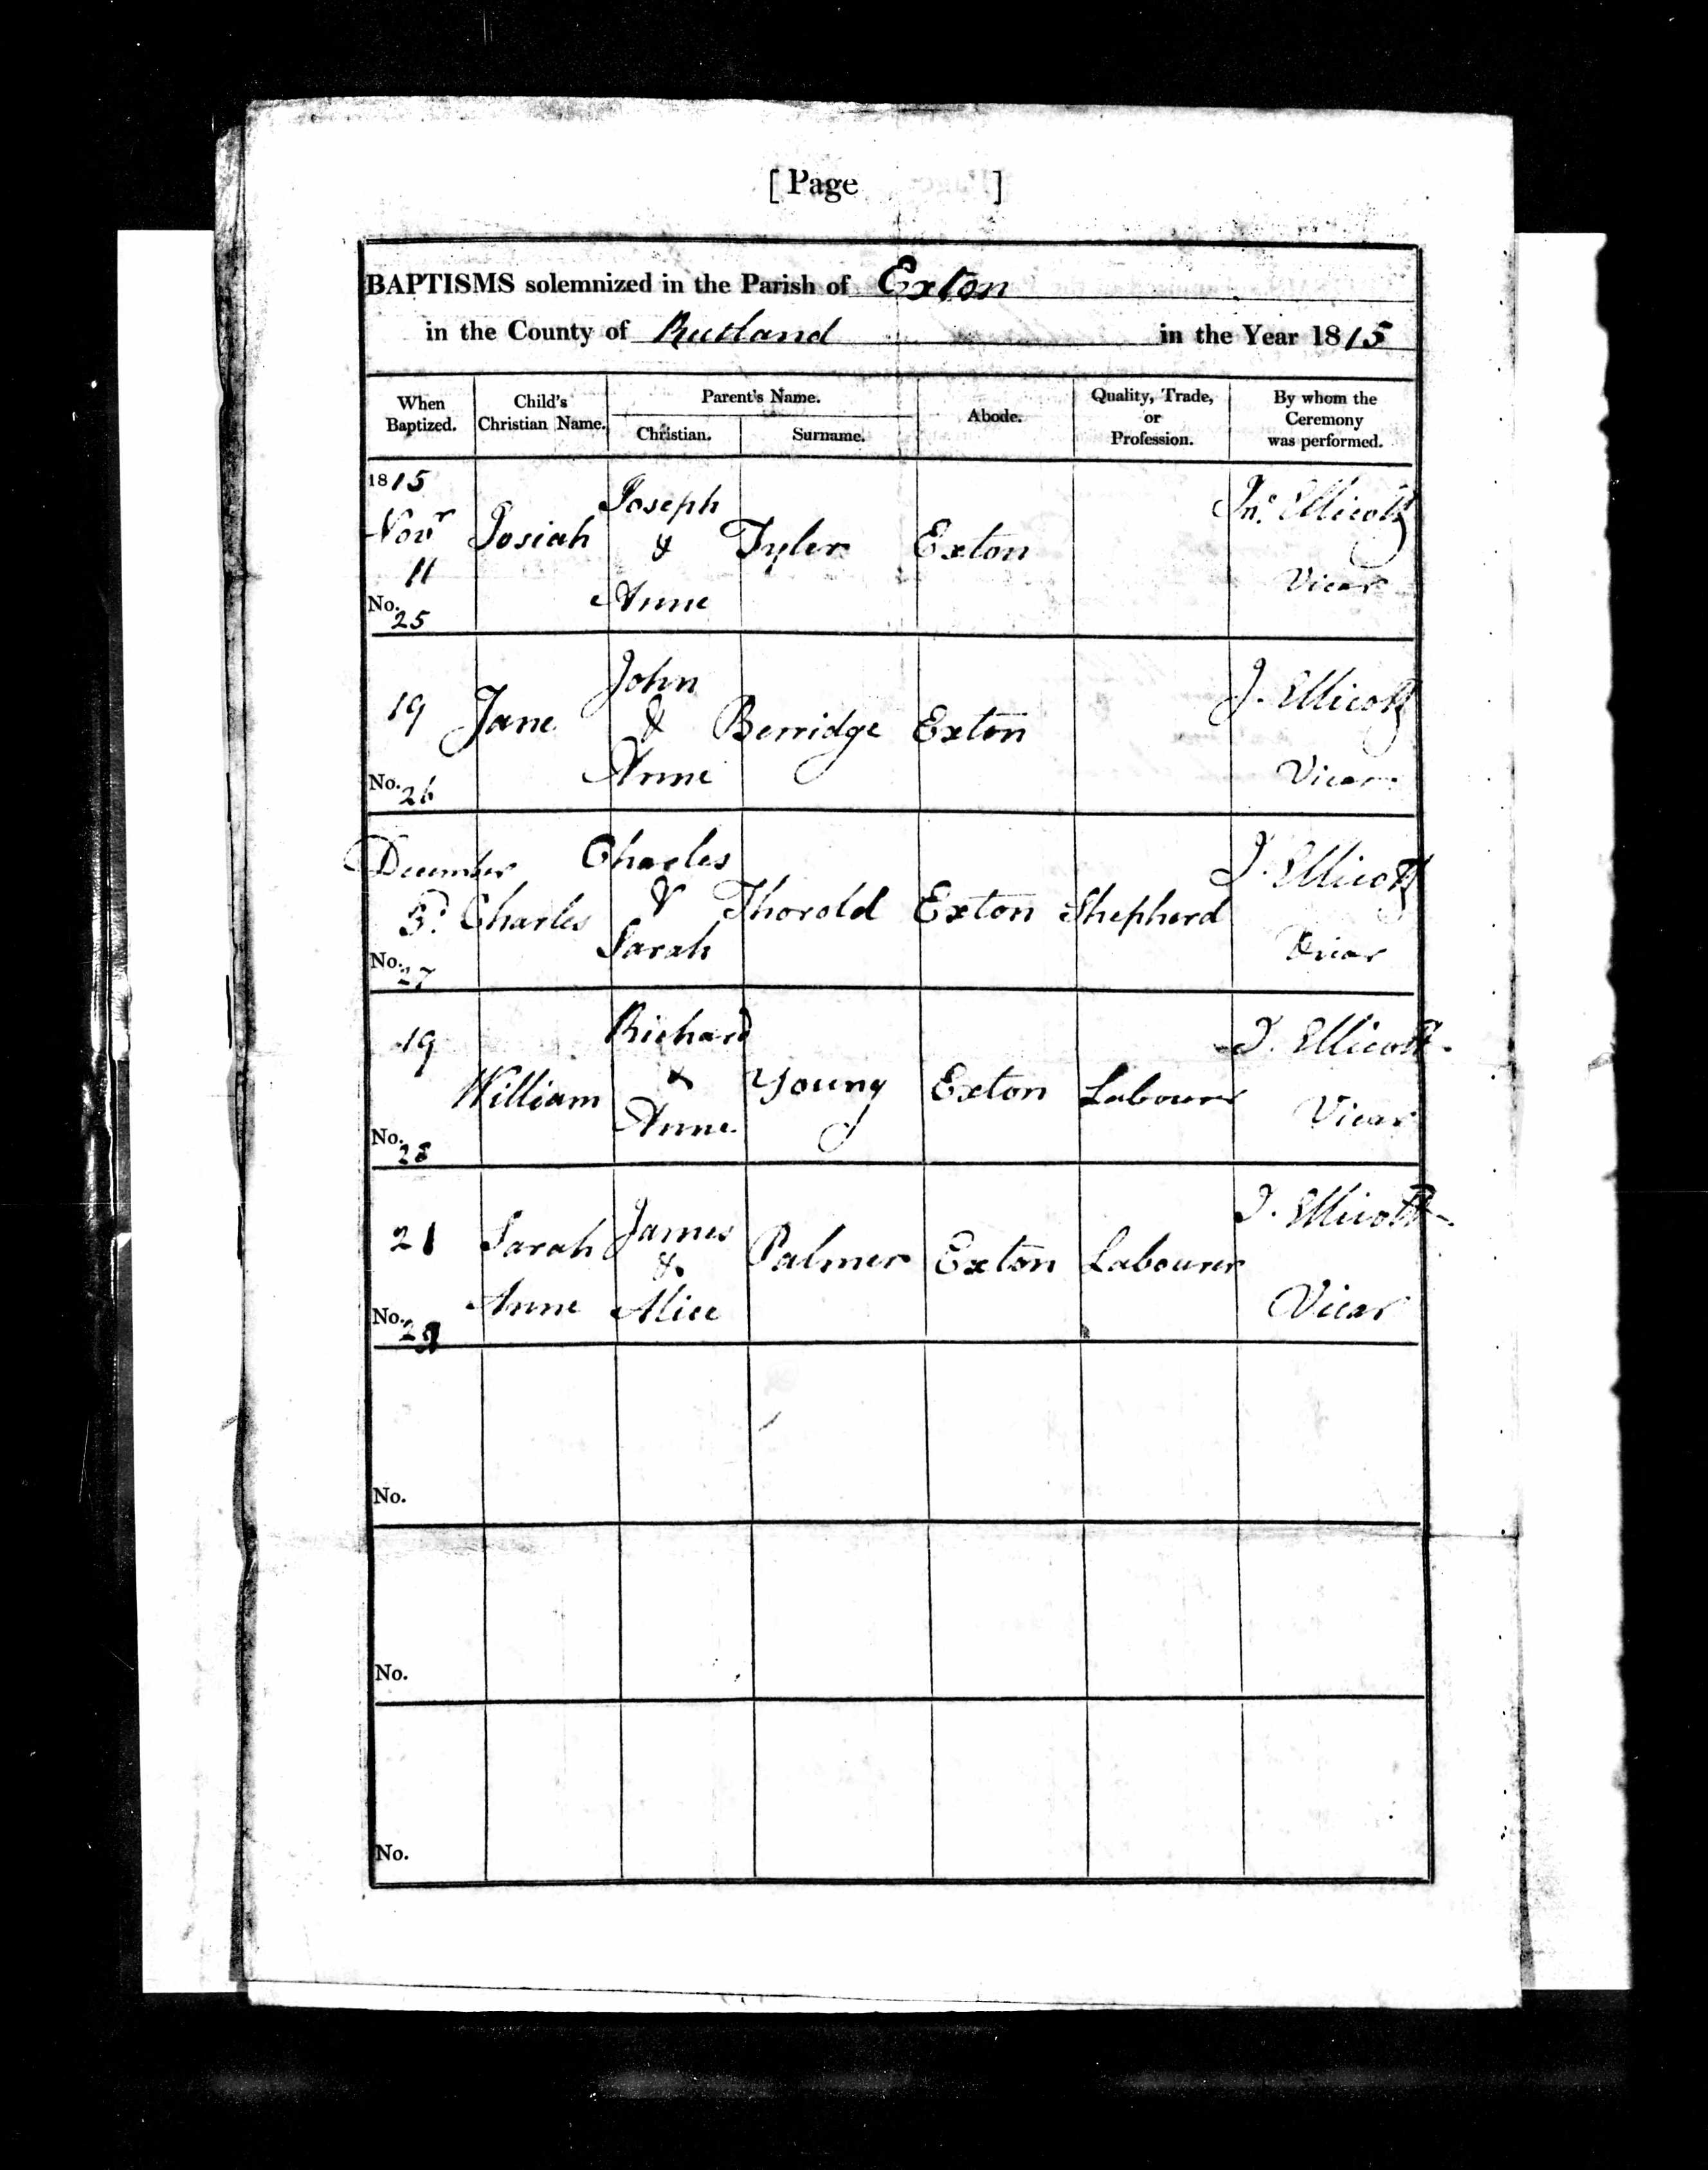 [ Page ]
BAPTISMS solemnized in the Parish of Exton
in the County of Rutland in the Year 1815
When Baptized.
Child's Christian Name.
Parent's Name.
Christian.
Surname.
Abode.
Quality, Trade, or Profession.
By whom the Ceremony was performed.
1815
Novr
11
No. 25
Josiah
Joseph
&
Anne
Tyler
Exton
Jno. Ellicott
Vicar
19
No. 26
Jane
John
&
Anne
Berridge
Exton
J. Ellicott
Vicar
December
3d
No. 27
Charles
Charles
&
Sarah
Thorold
Exton
Shepherd
J. Ellicott
Vicar
19
No. 28
William
Richard
&
Anne
Young
Exton
Labourer
J. Ellicott
Vicar
21
No. 29
Sarah
Anne
James
&
Alice
Palmer
Exton
Labourer
J. Ellicott
Vicar
No.
No.
No.